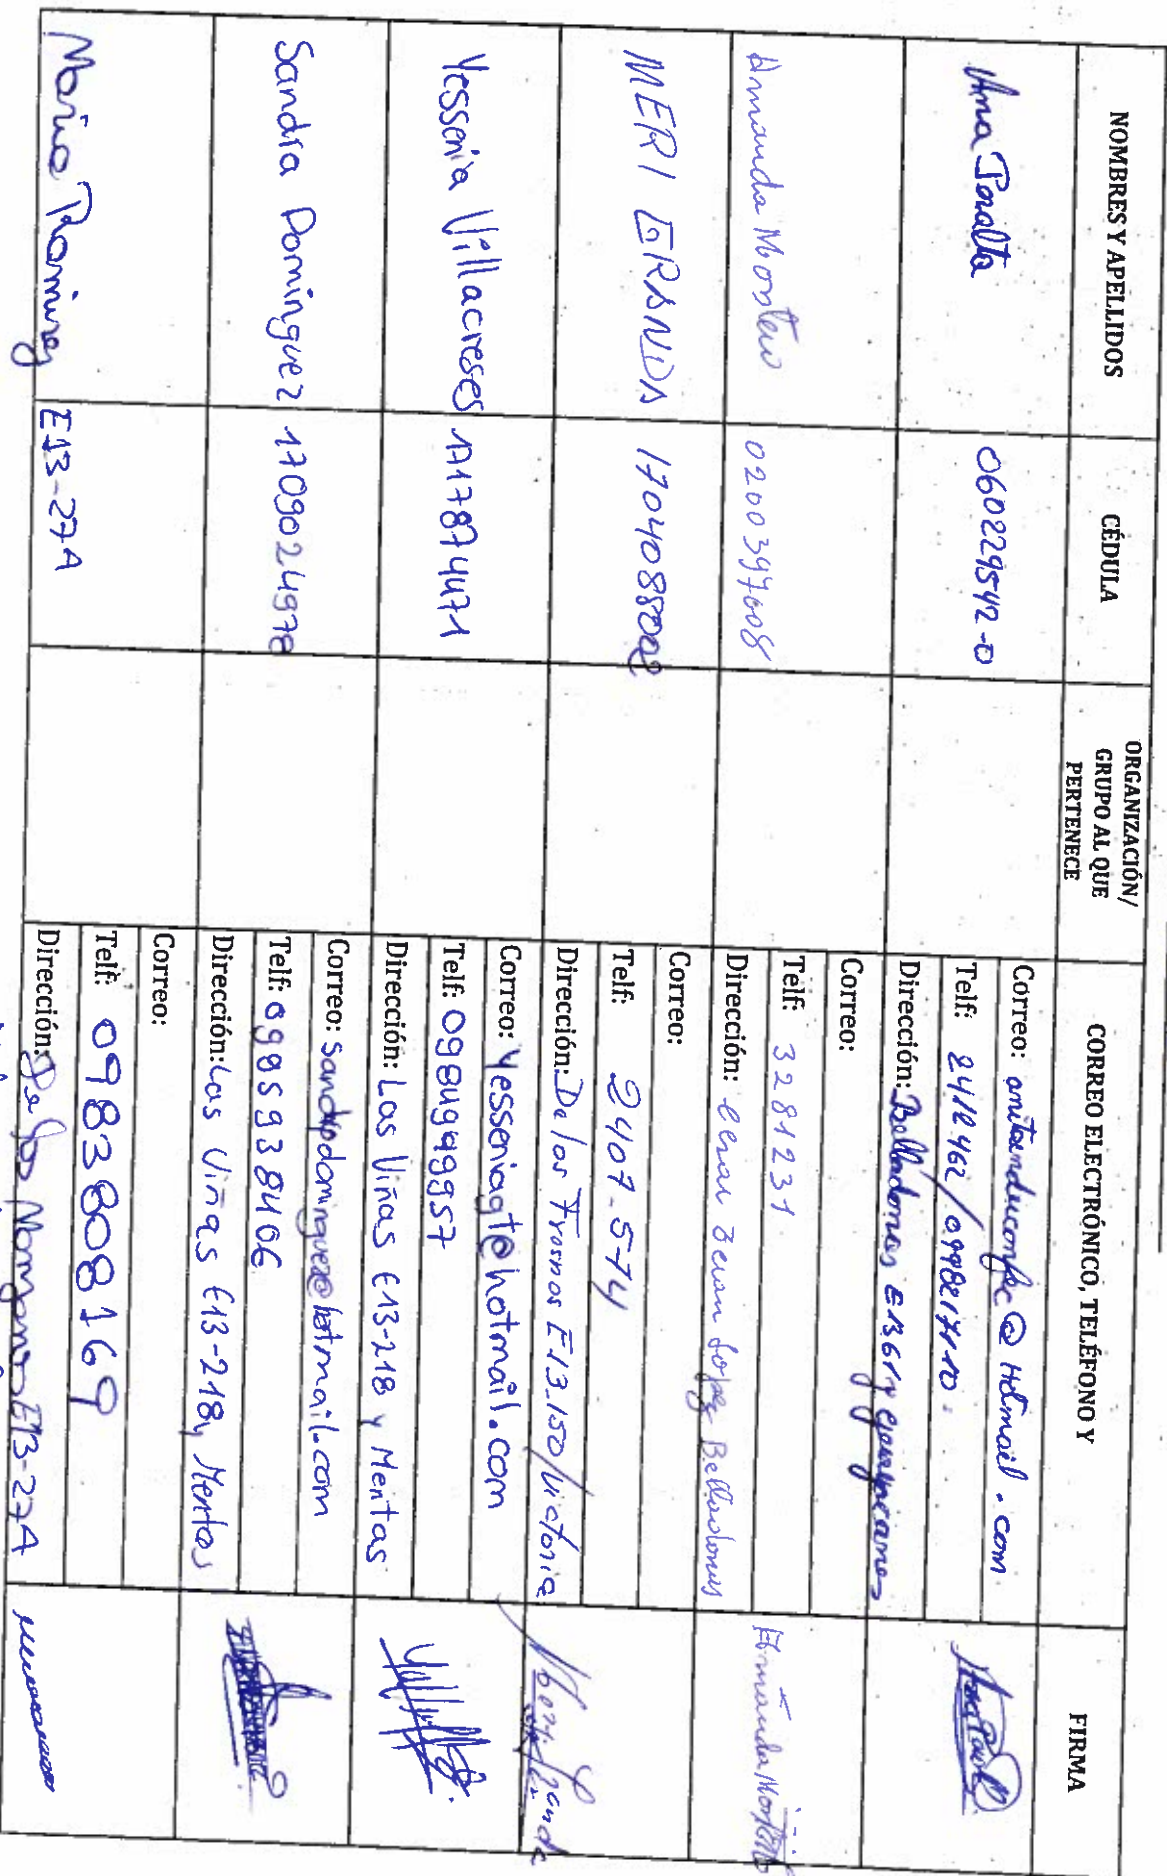 NOMBRES Y APELLIDOS
CÉDULA
ORGANIZACIÓN/
GRUPO AL QUE
PERTENECE
CORREO ELECTRÓNICO, TELÉFONO Y
FIRMA
Ana Peralta
060229542-0
Correo: @ Hotmail.com
Telf: 2412462/
Dirección: Belladonas
Amanda
0200397008
Correo:
Telf: 3281231
Dirección: Lopez Belladonas
MERI GRANDA
1704088002
Correo:
Telf: 2407-574
Dirección: De los Fresnos E13.150/Victoria
Yessenia Villacreses
1717874471
Correo: yesseniagt@hotmail.com
Telf: 0984949957
Dirección: Las Viñas E13-218 y Mentas
Sandra Dominguez
1709024978
Correo: @hotmail.com
Telf: 0995938406
Dirección: Las Viñas E13-218 y Mentas
Maria Ramirez
E13-27A
Correo:
Telf: 0983808169
Dirección: De los E13-27A